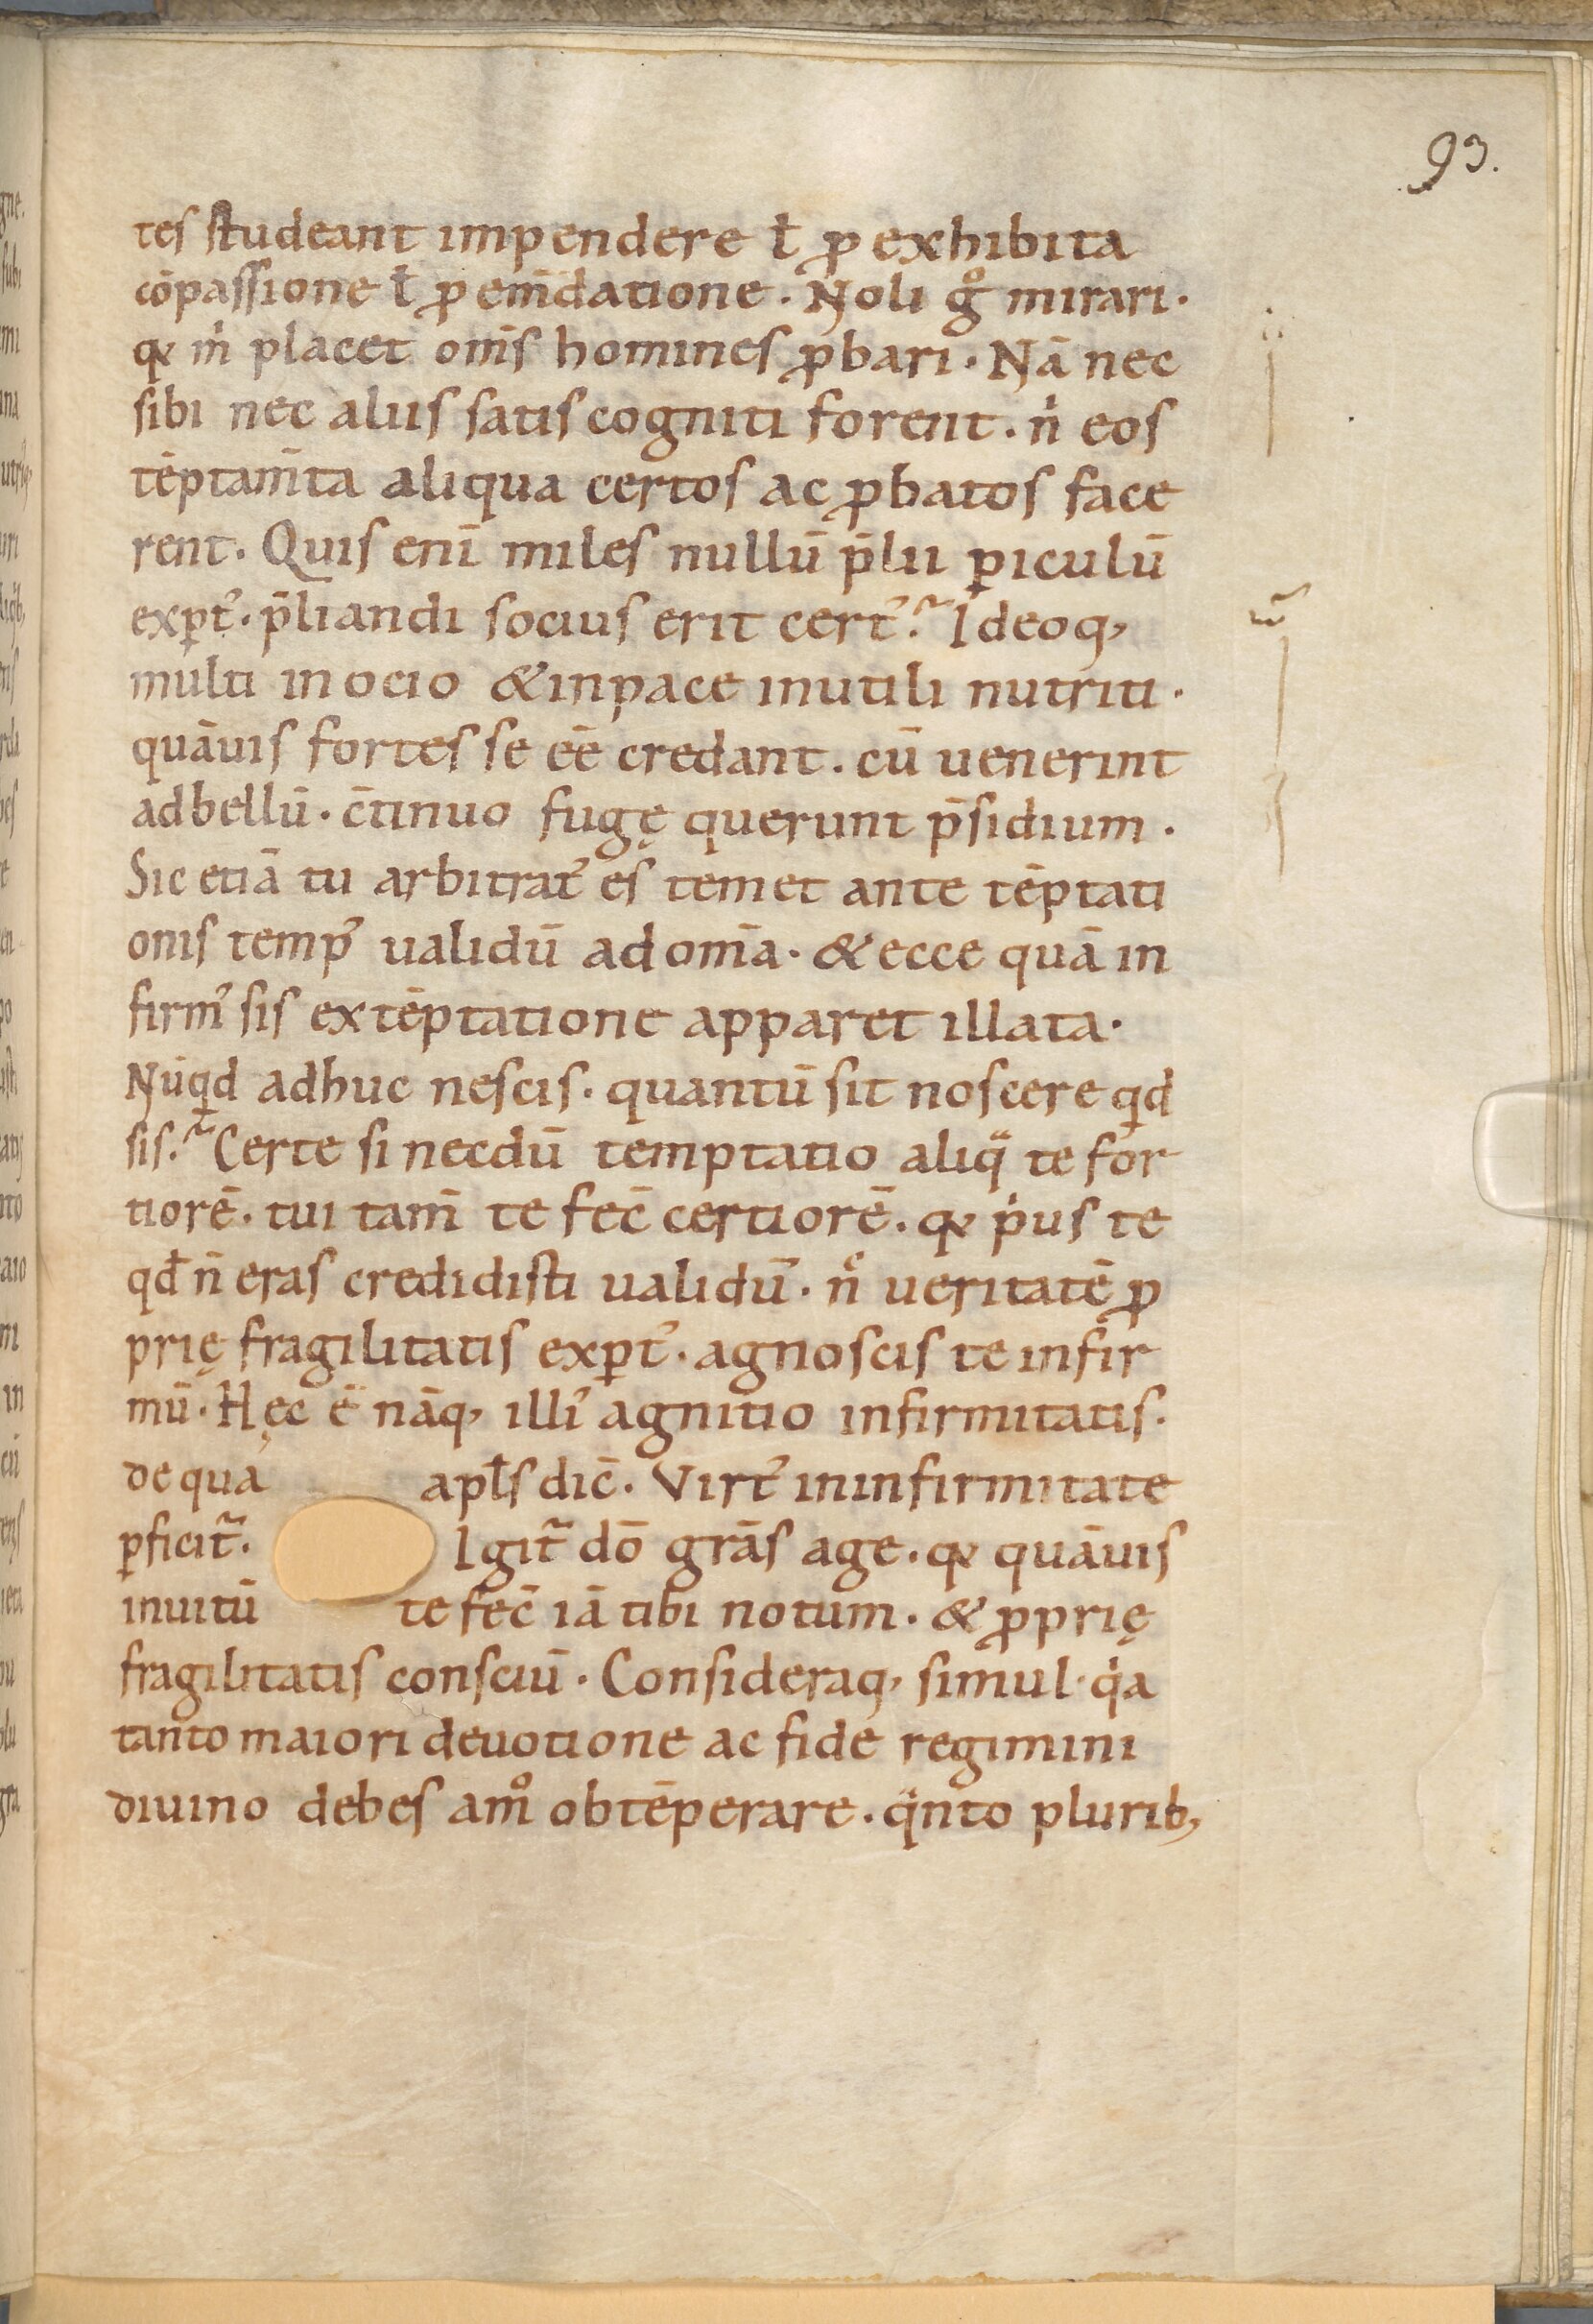 93.
tes studeant impendere ł ꝓ exhibita
cōpassione ł ꝓ em̄datione. Noli gͦ mirari.
qꝛ mͥ placet om̄s homines ꝓbari. Nā nec
sibi nec aliis satis cogniti forent. nͥ eos
tēptam̄ta aliqua certos ac ꝓbatos face
rent. Quis enī miles nullū p̄lii ꝑiculū
exꝑt᾽. p̄liandi socius erit cert᾽? Ideoq;
multi in ocio & in pace inutili nutriti.
quāuis fortes se eē credant. cū uenerint
ad bellū. c̄tinuo fugę querunt p̄sidium.
Sic etiā tu arbitrat᾽ es temet ante tēptati
onis temp᾽ ualidū ad om̄a. & ecce quā in
firm᾽ sis ex tēptatione apparet illata.
Nūqͥd adhuc nescis. quantū sit noscere qͥd
sis? Certe si necdū temptatio aliqͣ te for
tiorē. tui tam̄ te fec̄ certiorē. qꝛ pͥus te
qđ n̄ eras credidisti ualidū. nͨ ueritatē ꝓ
prię fragilitatis exꝑt᾽. agnoscis te infir
mū. Hęc ē nāq; illi᾽ agnitio infirmitatis.
de qua apłs dic̄. Virt᾽ in infirmitate
ꝑficit᷑. Igit᷑ dō grās age. qꝛ quāuis
inuitū te fec̄ iā tibi notum. & ꝓprię
fragilitatis consciū. Consideraq; simul. qͥa
tanto maiori deuotione ac fide regimini
diuino debes am̊ obtēperare. qͣnto plurib;